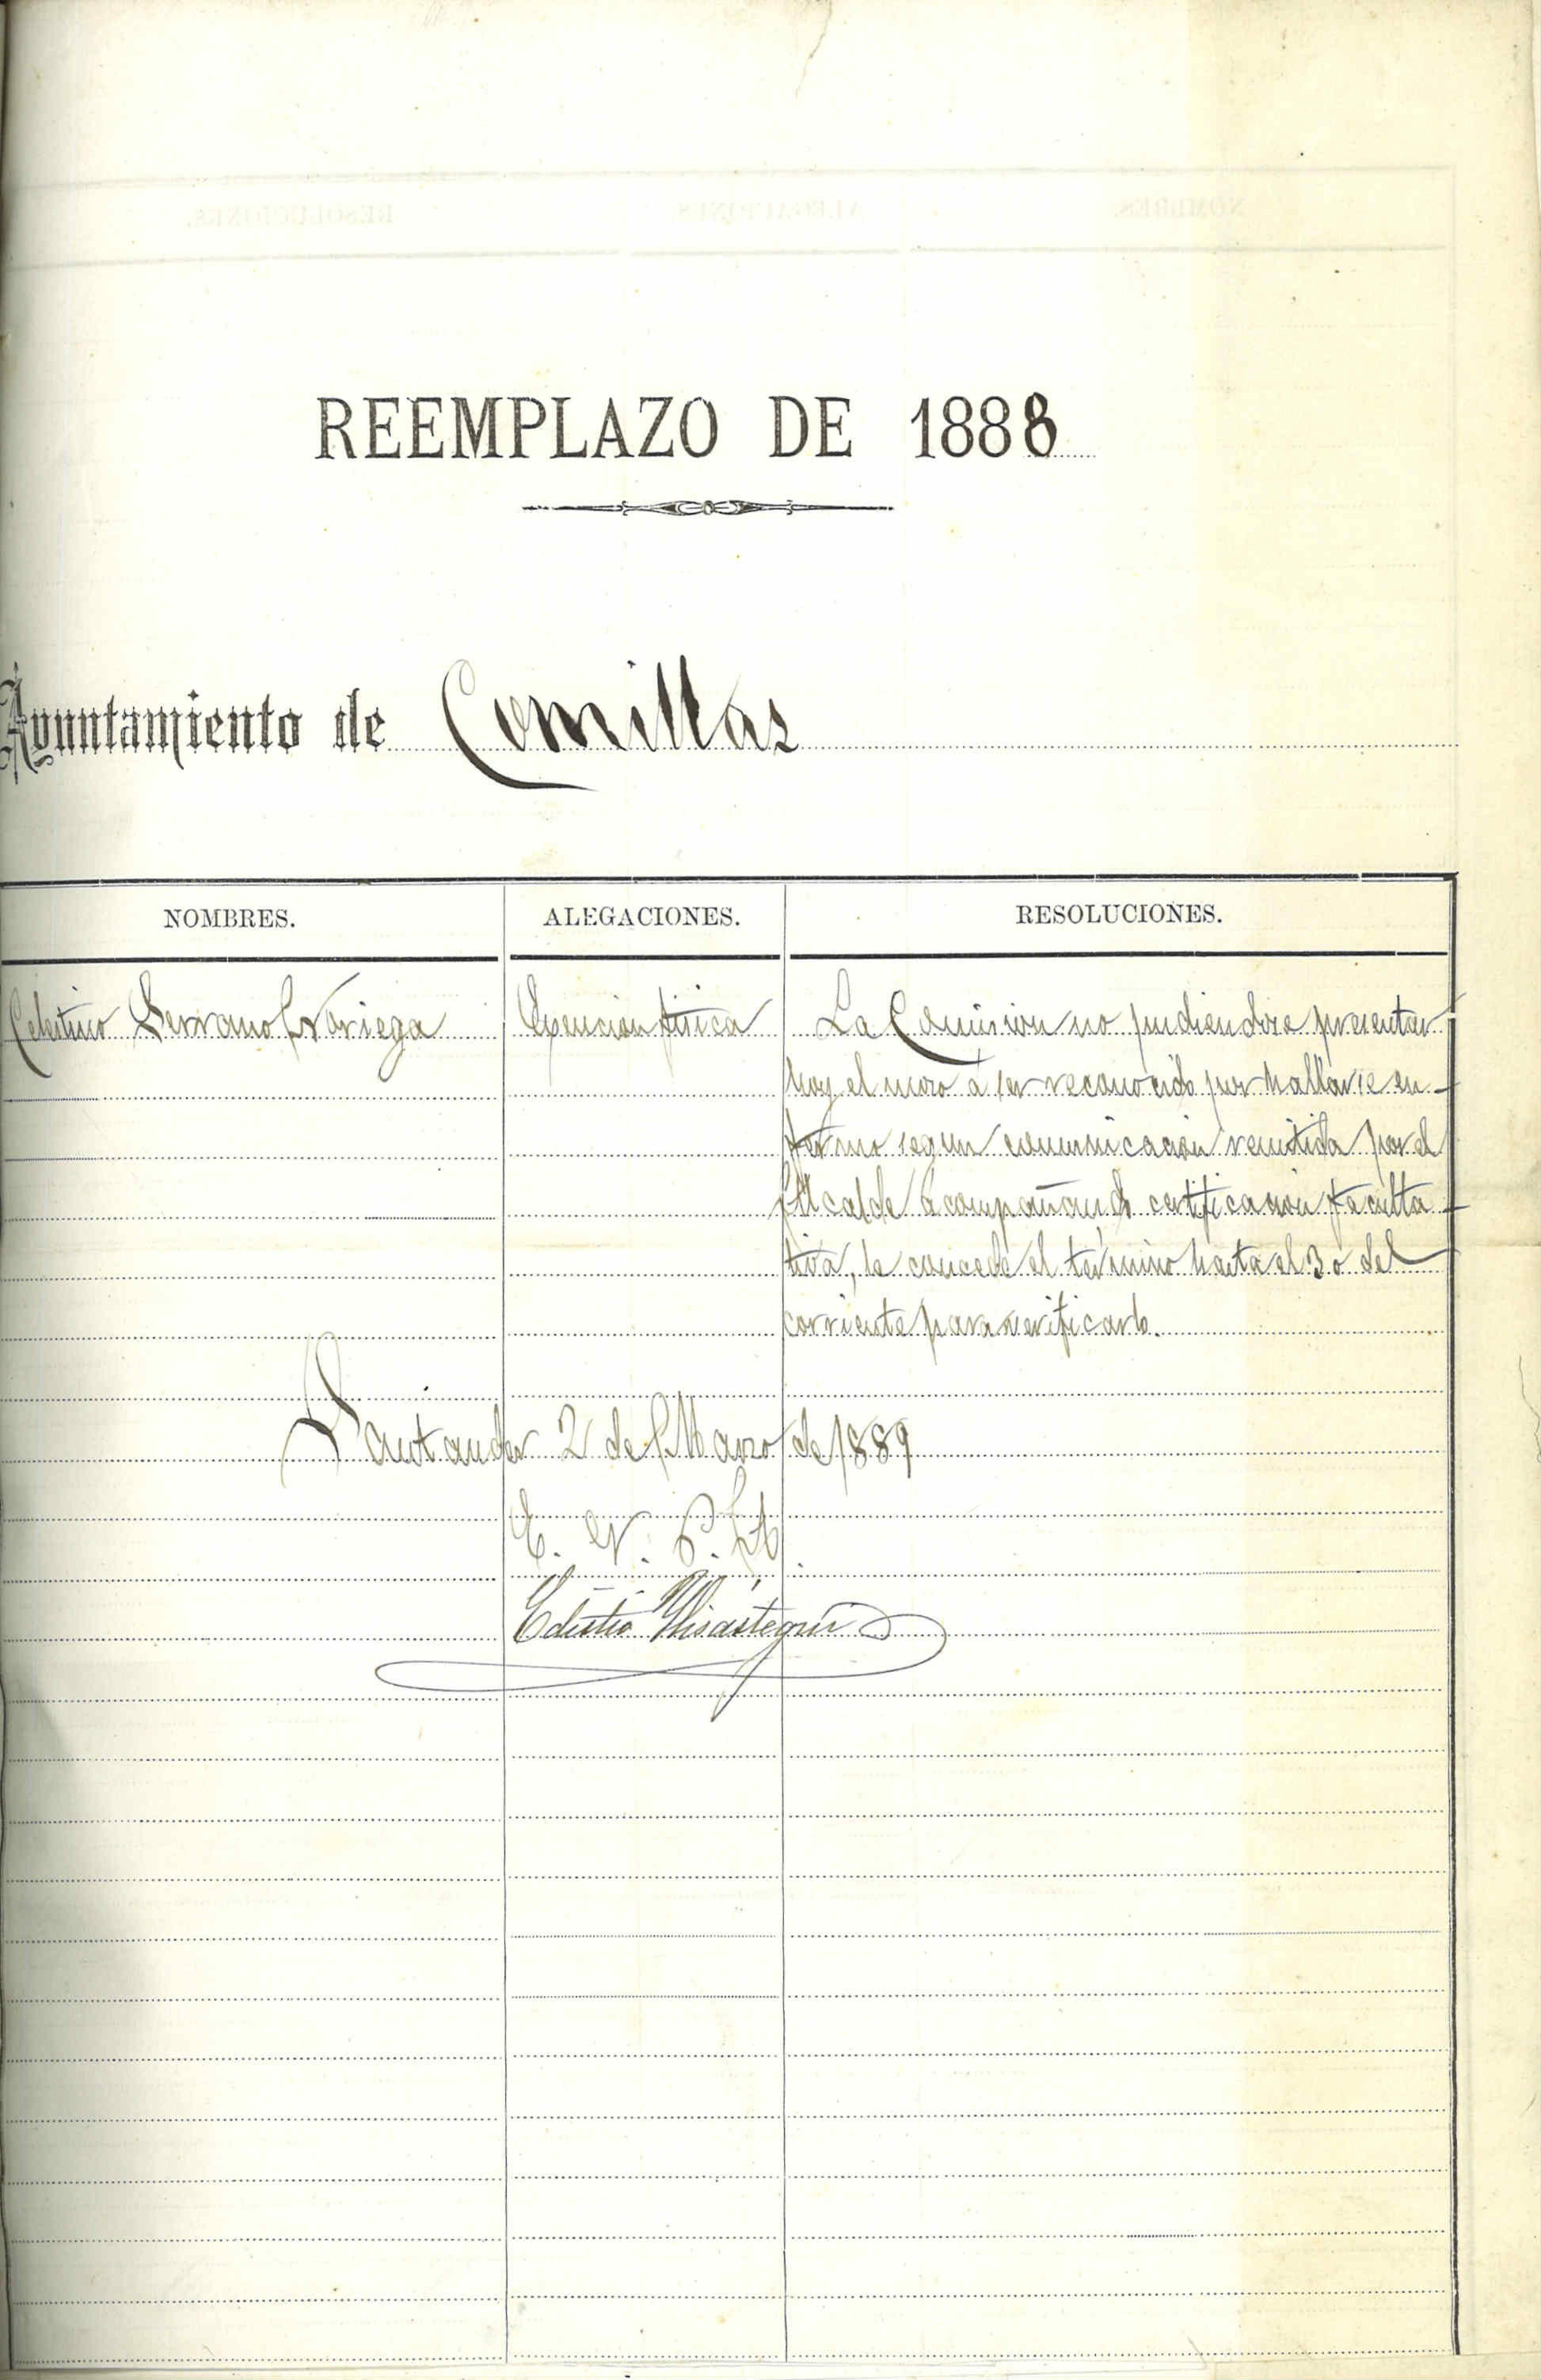 REEMPLAZO DE 1888
Ayuntamiento de Comillas
NOMBRES. ALEGACIONES. RESOLUCIONES.
Celestino Serrano Noriega Exencion física La Comision no pudiendose presentar
hoy el mozo á ser reconocido por hallarse en-
fermo segun comunicacion remitida por el
Alcalde acompañando certificacion faculta
tiva, le concede el término hasta el 30 del
corriente para verificarlo.
Santander 2 de Marzo de 1889
E. V. P. A.
Edistio